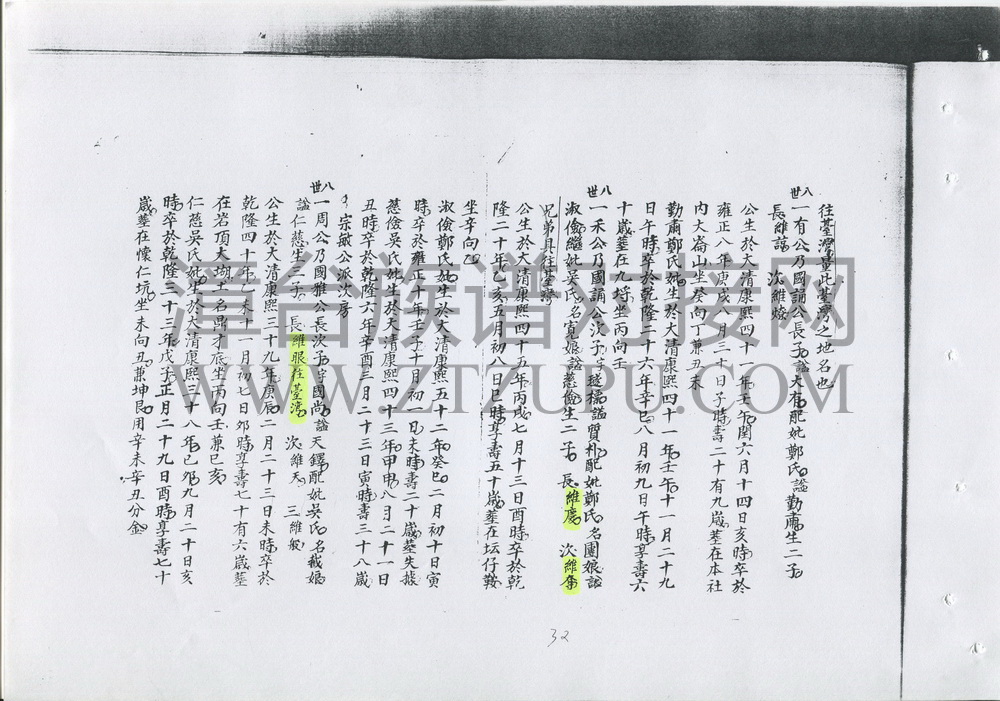 往臺灣重此臺灣之地名也
八世
一有公乃國誦公長子謚大有配妣鄭氏謚勤肅生二子
長維謨 次維燎
公生於大清康熙四十一年壬午閏六月十四日亥時卒於
雍正八年庚戌八月三十日子時壽二十有九歲葬在本社
內大崙山坐癸向丁兼丑未
勤肅鄭氏妣生於大清康熙四十一年壬午十一月二十九
日午時卒於乾隆二十六年辛巳八月初九日午時享壽六
十歲葬在九坪坐丙向壬
八世
一禾公乃國誦公次子字璲標謚質朴配妣鄭氏名園娘謚
淑儉繼妣吳氏名寬娘謚慈儉生二子 長維慶 次維
兄弟具往臺灣
公生於大清康熙四十五年丙戌七月十三日酉時卒於乾
隆二十年乙亥五月初八日巳時享壽五十歲葬在坛仔鞍
坐辛向乙
淑儉鄭氏妣生於大清康熙五十二年癸巳二月初十日寅
時卒於雍正十年壬子十月初一日未時壽二十歲葬失據
慈儉吳氏妣生於大清康熙四十三年甲申八月二十一日
丑時卒於乾隆六年辛酉三月二十三日寅時壽三十八歲
宗敏公派次房
八世
一周公乃國雅公長次子字國尚謚天鐸配妣吳氏名裁娘
謚仁慈生三子 長維服往臺灣 次維天 三維般
公生於大清康熙三十九年庚辰二月二十三日未時卒於
乾隆四十年乙未十一月初七日卯時享壽七十有六歲葬
在岩頂大坳土名鼎才底坐丙向壬兼巳亥
仁慈吳氏妣生於大清康熙三十八年己卯九月二十日亥
時卒於乾隆三十三年戊子正月二十九日酉時享壽七十
歲葬在懷仁坑坐未向丑兼坤艮用辛未辛丑分金
32
漳台族谱对接网
WWW.ZTZUPU.COM